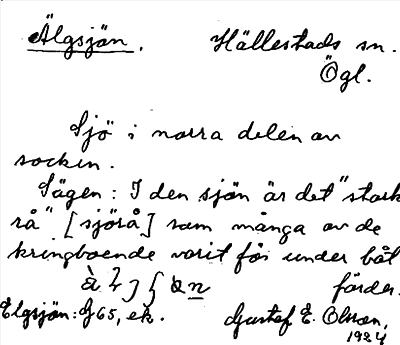 Älgsjön. Hällestads sn.
Ögl.
Sjö i norra delen av
socken.
Sägen: I den sjön är det "stark
rå" [sjörå] som många av de
kringboende varit för under båt
färder.
Elgsjön: G65, ek. Gustaf E. Olsson,
1924